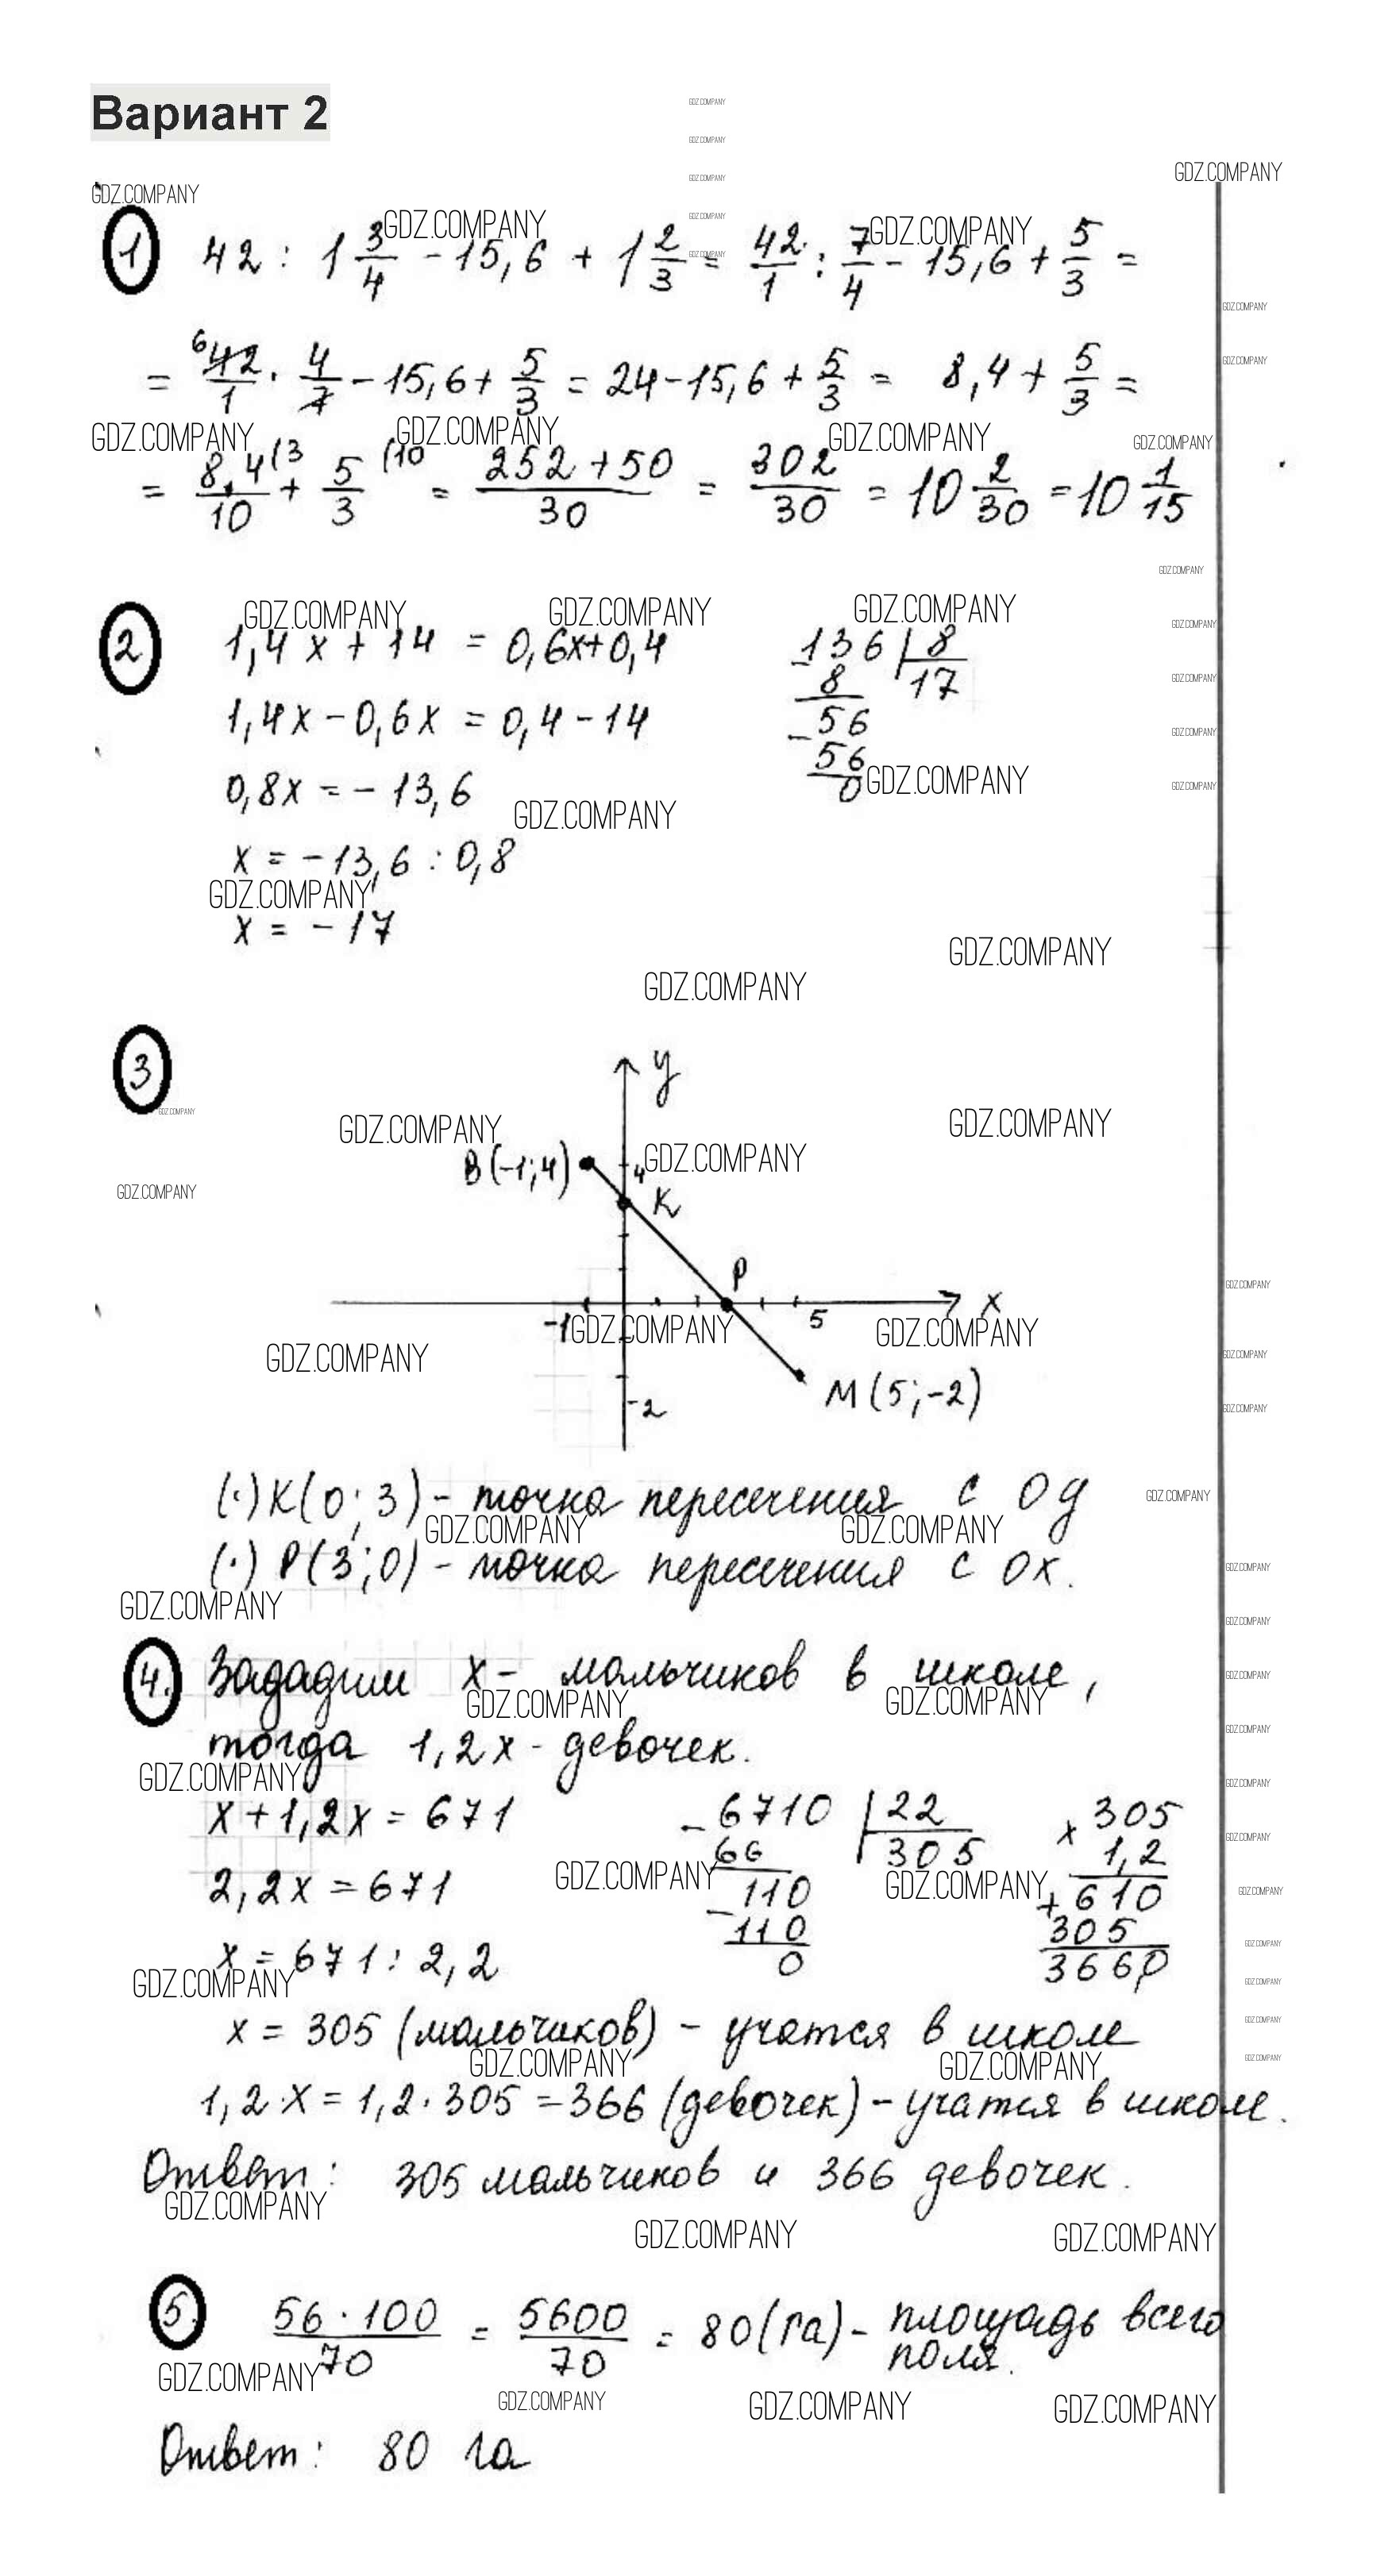 Вариант 2
GDZ.COMPANY
1 42 : 1 3/4 - 15,6 + 1 2/3 = 42/1 : 7/4 - 15,6 + 5/3 =
= 6 42/1 · 4/7 - 15,6 + 5/3 = 24 - 15,6 + 5/3 = 8,4 + 5/3 =
= 8,4(3/10 + 5/3 (10 = 252+50/30 = 302/30 = 10 2/30 = 10 1/15
2 1,4x + 14 = 0,6x+0,4
1,4x - 0,6x = 0,4 - 14
0,8x = - 13,6
x = -13,6 : 0,8
x = - 17
136 | 8
- 8 17
- 56
56
0
3
y
B(-1;4) 4
K
P
-1 5 x
M(5;-2)
-2
(·) K(0;3) - точка пересечения с Oy
(·) P(3;0) - точка пересечения с Ox.
4. Зададим x - мальчиков в школе,
тогда 1,2x - девочек.
x + 1,2x = 671
2,2x = 671
x = 671 : 2,2
- 6710 | 22
66 305
- 110
110
0
x 305
1,2
+ 610
305
366,0
x = 305 (мальчиков) - учатся в школе
1,2·x = 1,2·305 = 366 (девочек) - учатся в школе.
Ответ: 305 мальчиков и 366 девочек.
5. 56·100/70 = 5600/70 = 80(га) - площадь всего
поля.
Ответ: 80 га